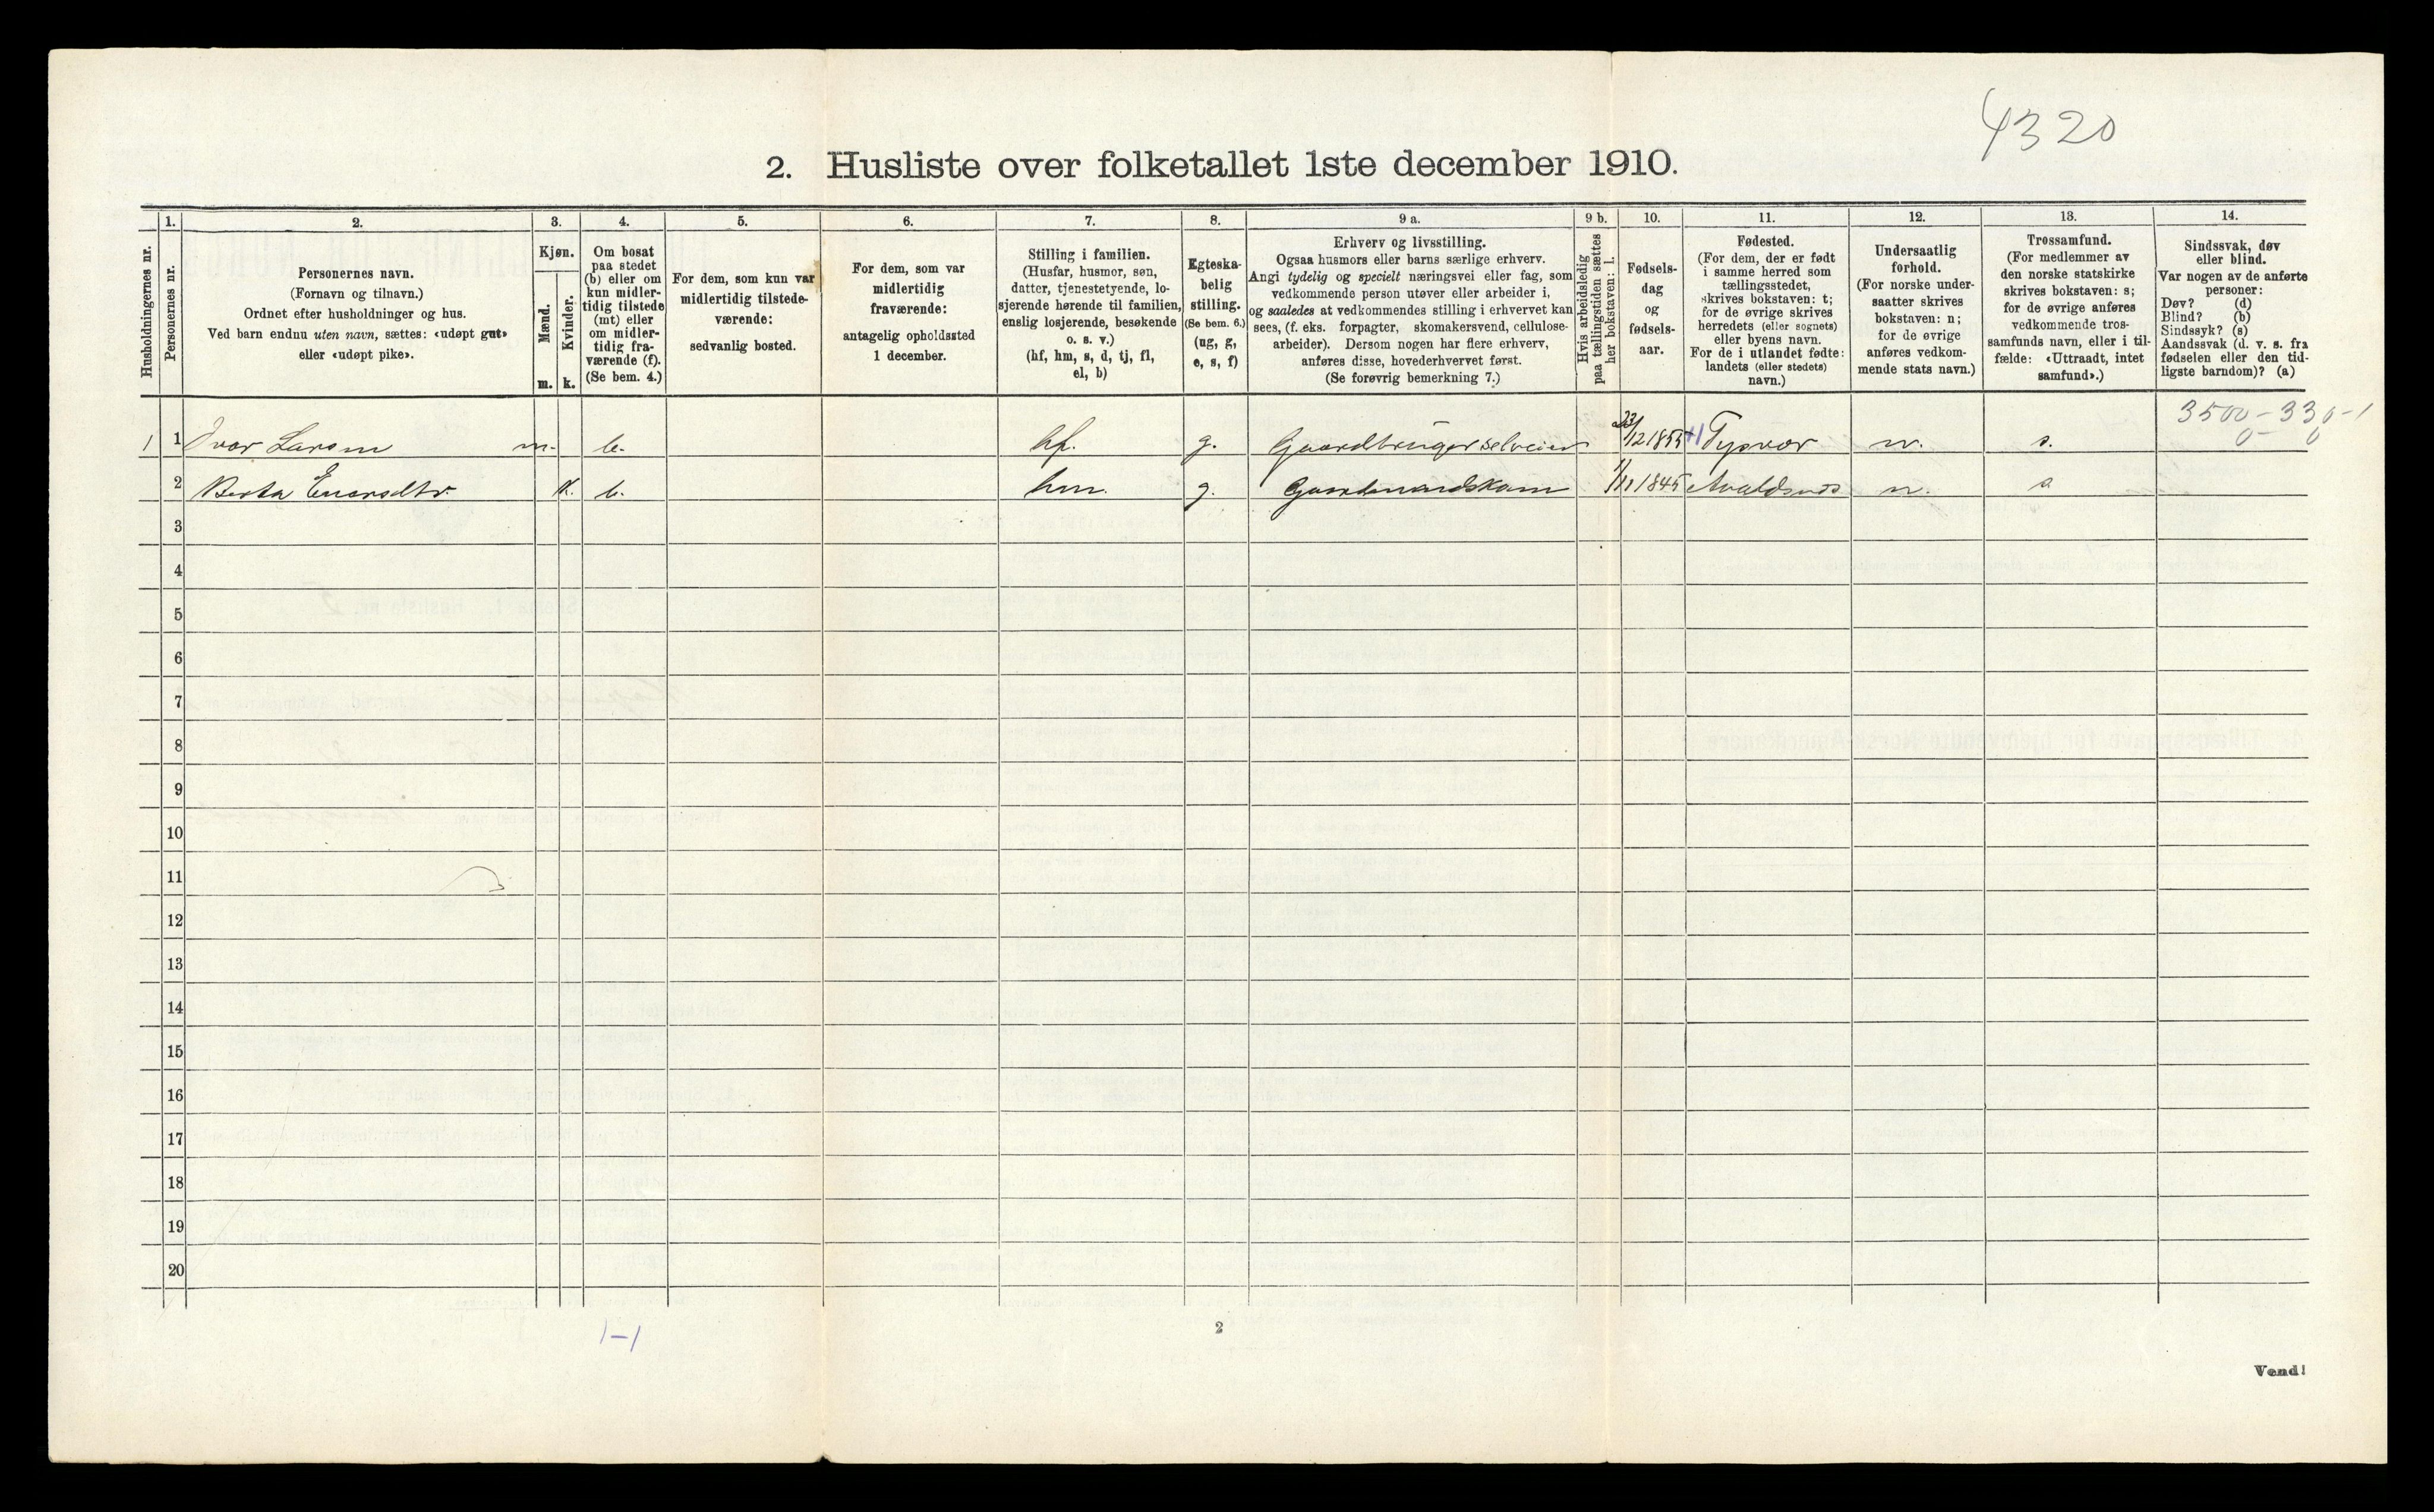 4320
2. Husliste over folketallet 1ste december 1910.
Husholdningernes nr.
1.
Personernes nr.
2.
Personernes navn.
(Fornavn og tilnavn.)
Ordnet efter husholdninger og hus.
Ved barn endnu uten navn, sættes: «udøpt gut»
eller «udøpt pike».
3.
Kjøn.
Mænd.
Kvinder.
m. k.
4.
Om bosat
paa stedet
(b) eller om
kun midler-
tidig tilstede
(mt) eller
om midler-
tidig fra-
værende (f).
(Se bem. 4.)
5.
For dem, som kun var
midlertidig tilstede-
værende:
sedvanlig bosted.
6.
For dem, som var
midlertidig
fraværende:
antagelig opholdssted
1 december.
7.
Stilling i familien.
(Husfar, husmor, søn,
datter, tjenestetyende, lo-
sjerende hørende til familien,
enslig losjerende, besøkende
o. s. v.)
(hf, hm, s, d, tj, fl,
el, b)
8.
Egteska-
belig
stilling.
(Se bem. 6.)
(ug, g,
e, s, f)
9 a.
Erhverv og livsstilling.
Ogsaa husmors eller barns særlige erhverv.
Angi tydelig og specielt næringsvei eller fag, som
vedkommende person utøver eller arbeider i,
og saaledes at vedkommendes stilling i erhvervet kan
sees, (f. eks. forpagter, skomakersvend, cellulose-
arbeider). Dersom nogen har flere erhverv,
anføres disse, hovederhvervet først.
(Se forøvrig bemerkning 7.)
9 b.
Hvis arbeidsledig
paa tællingstiden sættes
her bokstaven: l.
10.
Fødsels-
dag
og
fødsels-
aar.
11.
Fødested.
(For dem, der er født
i samme herred som
tællingsstedet,
skrives bokstaven: t;
for de øvrige skrives
herredets (eller sognets)
eller byens navn.
For de i utlandet fødte:
landets (eller stedets)
navn.)
12.
Undersaatlig
forhold.
(For norske under-
saatter skrives
bokstaven: n;
for de øvrige
anføres vedkom-
mende stats navn.)
13.
Trossamfund.
(For medlemmer av
den norske statskirke
skrives bokstaven: s;
for de øvrige anføres
vedkommende tros-
samfunds navn, eller i til-
fælde: «Uttraadt, intet
samfund».)
14.
Sindssvak, døv
eller blind.
Var nogen av de anførte
personer:
Døv? (d)
Blind? (b)
Sindssyk? (s)
Aandssvak (d. v. s. fra
fødselen eller den tid-
ligste barndom)? (a)
3500 - 330 - 1
0 - 0
1 1 Ivar Larsen m. b. hf. g. Gaardbruger selveier 23/12 1855 +1 Tysvær n. s.
2 Berta Enarsdtr. k. b. hm. g. Gaardmandskone 1/11 1845 Avaldsnes n. s
3
4
5
6
7
8
9
10
11
12
13
14
15
16
17
18
19
20
1-1
2
Vend!